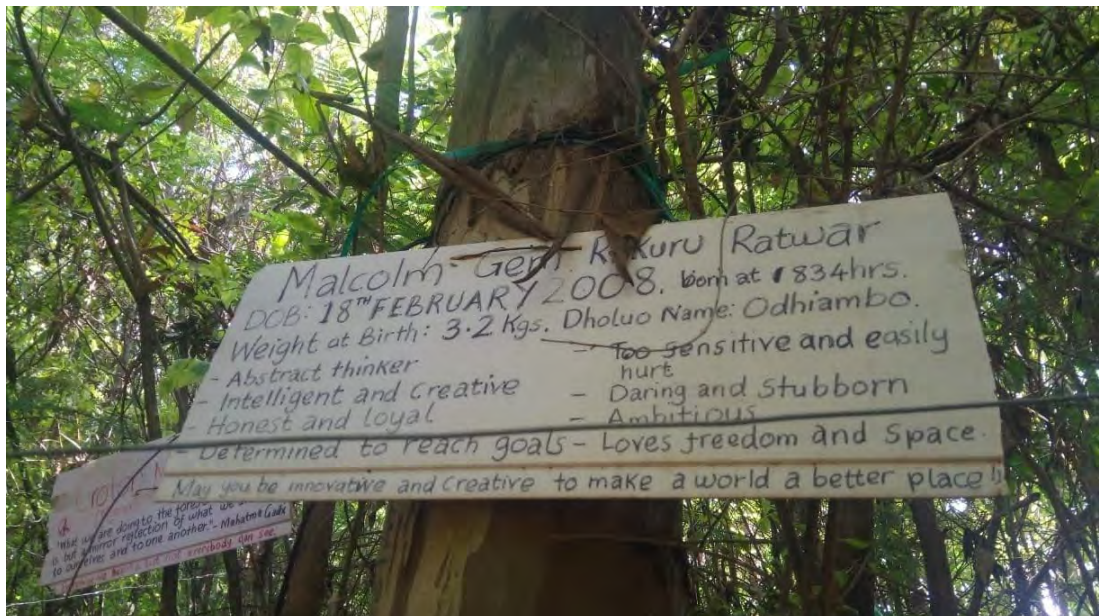 Malcolm Gem Rakuru Ratwar
DOB: 18TH FEBRUARY 2008. born at 1834hrs.
Weight at Birth: 3.2 Kgs. Dholuo Name: Odhiambo.
- Abstract thinker
- Intelligent and Creative
- Honest and loyal
- Determined to reach goals
- Too Sensitive and easily
hurt
- Daring and Stubborn
- Ambitious
- Loves freedom and Space.
May you be innovative and Creative to make a world a better place!
Croton
"What we are doing to the forests
is but a mirror reflection of what we
to ourselves and to one another." - Mahatma
everybody can see.